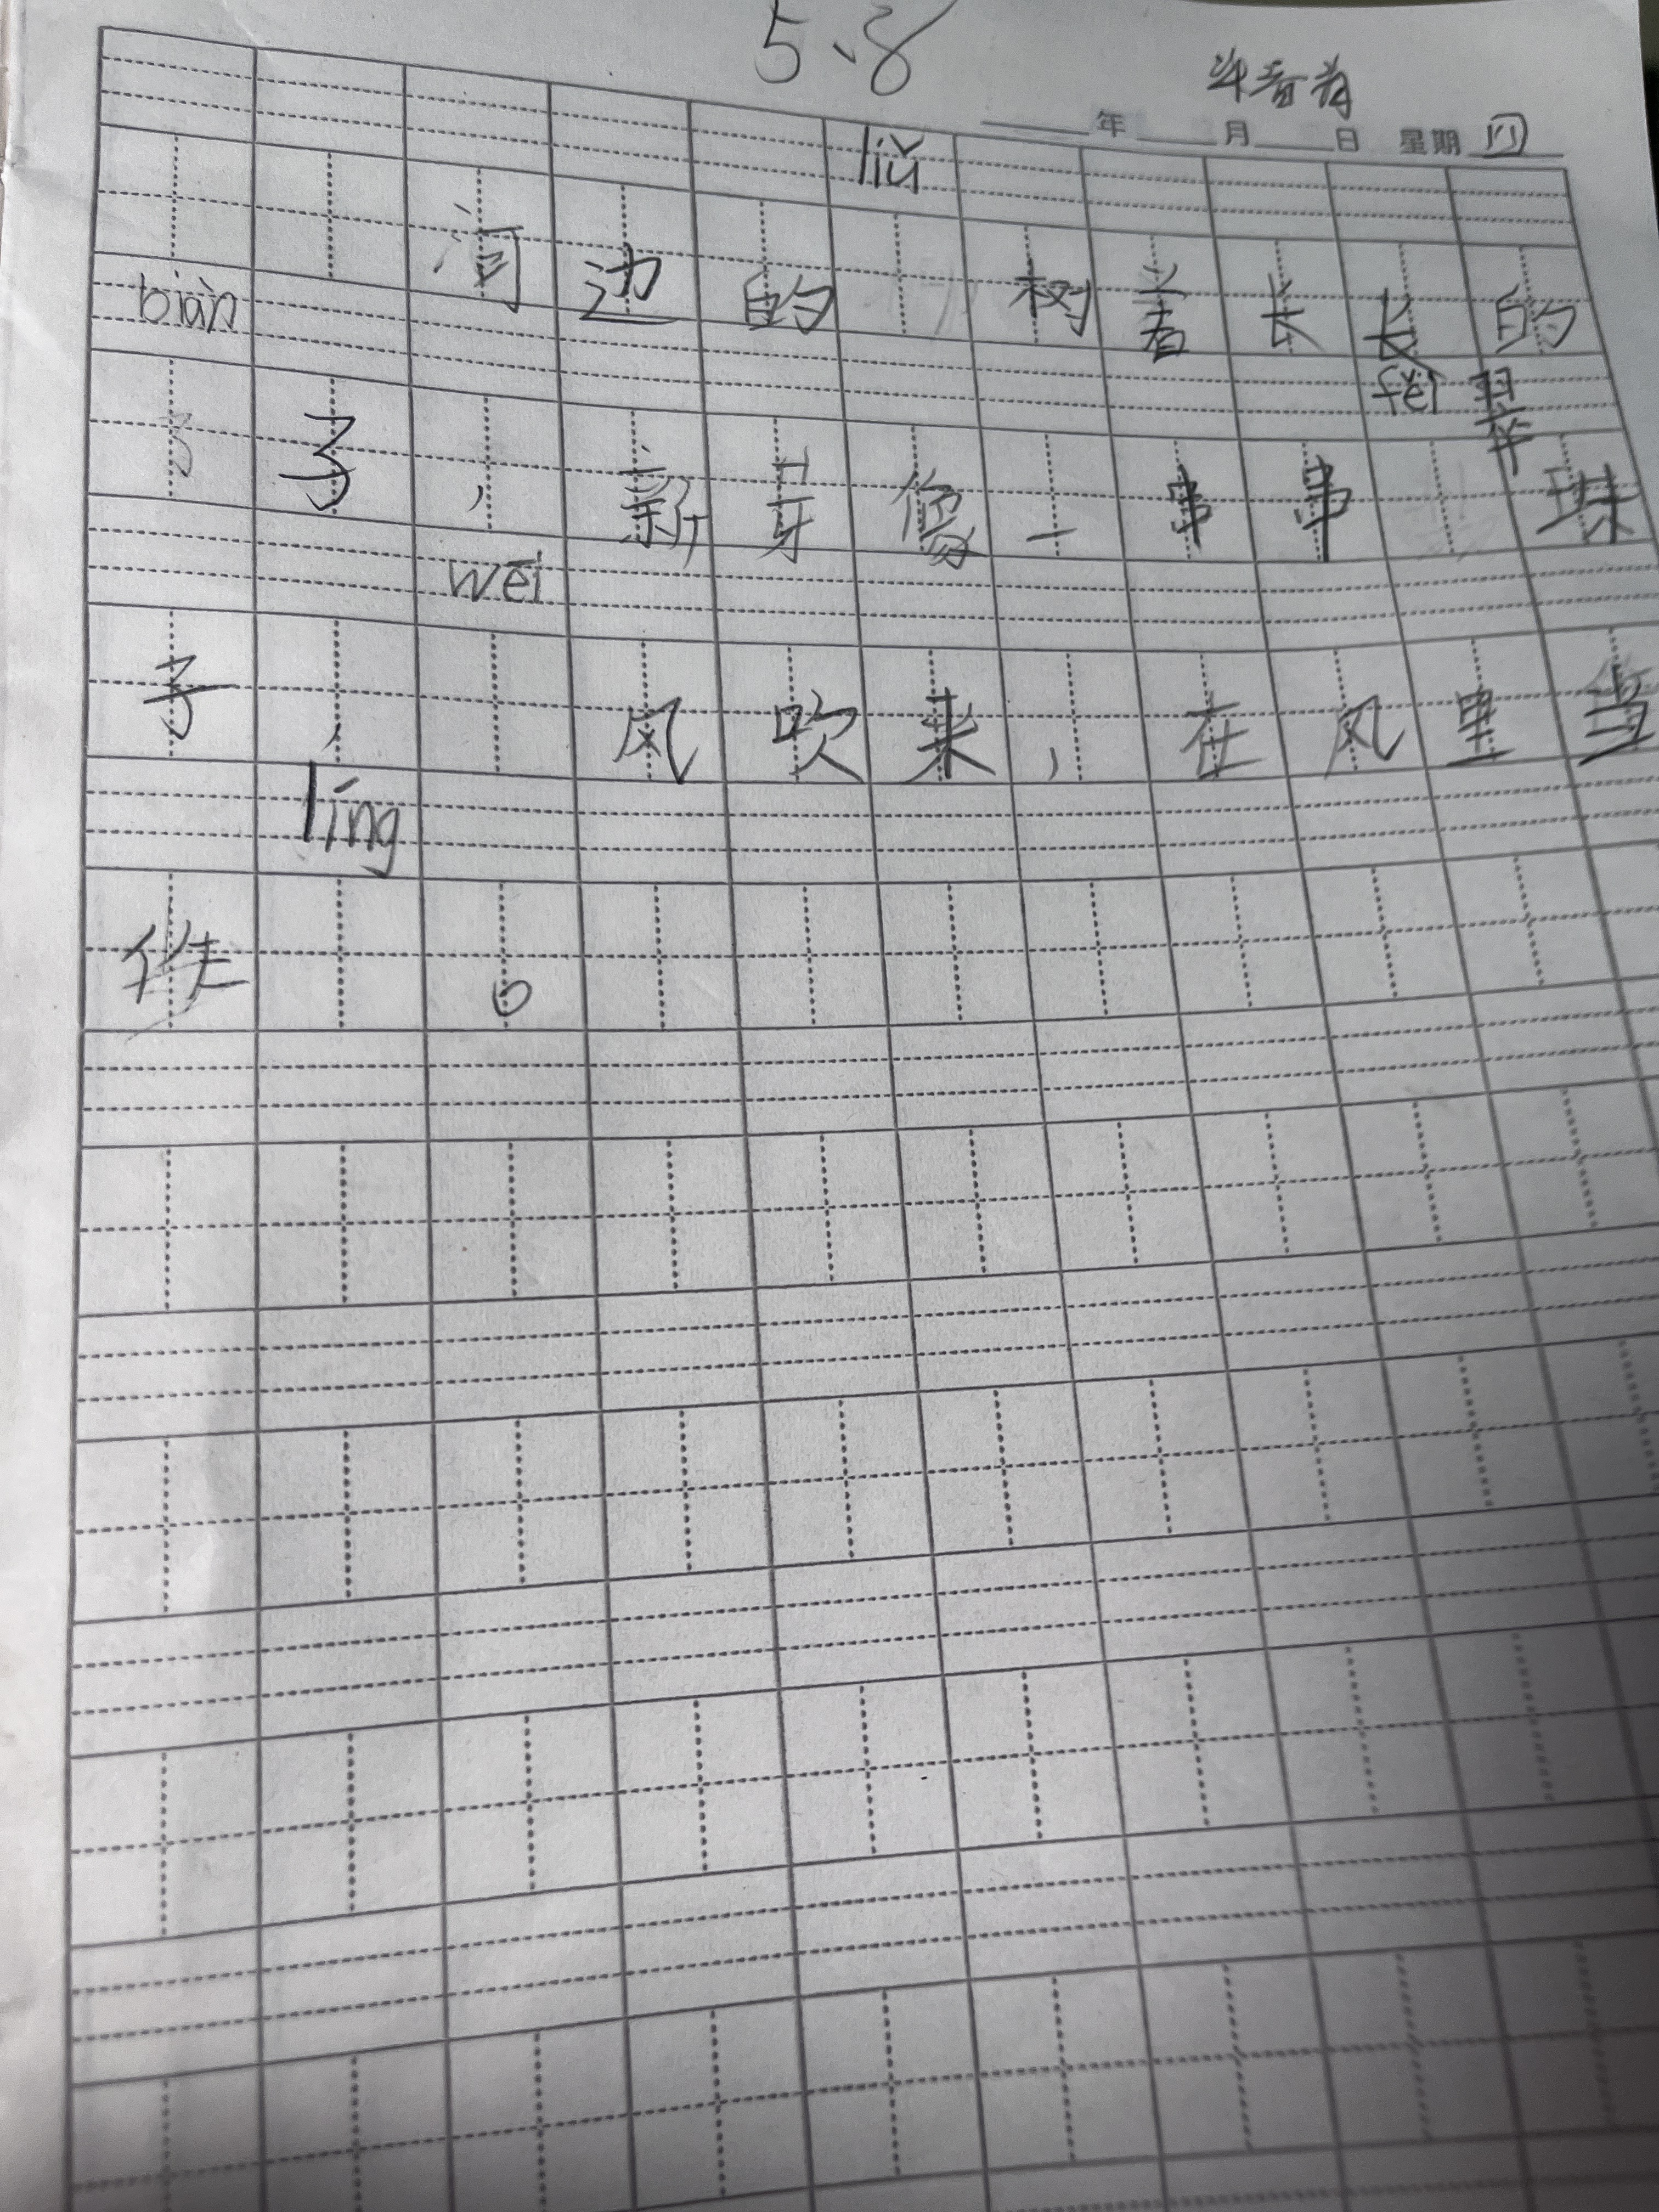 5、8
年 月 日 星期 四
liǔ
河边的 树着长长的
biàn fěi 翠
子，新芽像一串串 珠
wēi
子， 风吹来，在风里当
líng
。